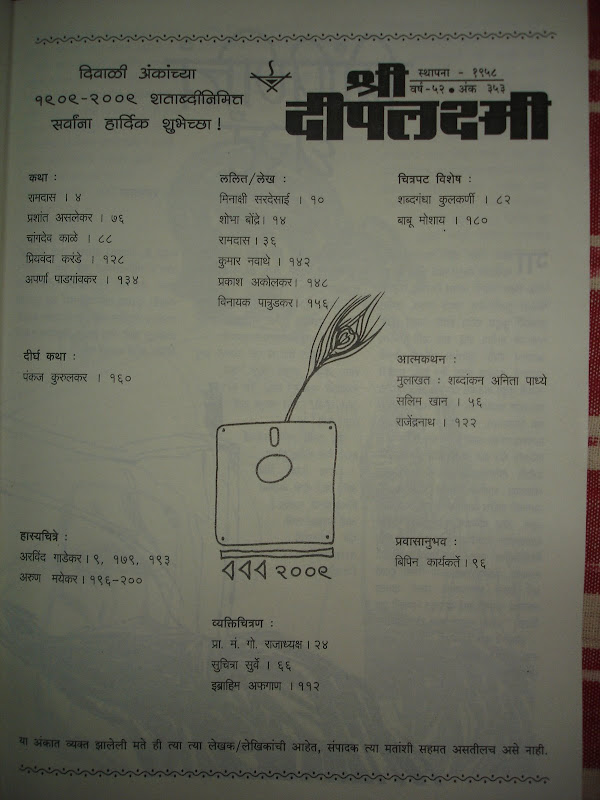 दिवाळी अंकांच्या
१९०९-२००९ शताब्दीनिमित्त
सर्वांना हार्दिक शुभेच्छा !
श्री
स्थापना - १९५८
वर्ष-५२ • अंक ३५३
दीपलक्ष्मी
कथा :
रामदास । ४
प्रशांत असलेकर । ७६
चांगदेव काळे । ८८
प्रियवंदा करंडे । १२८
अपर्णा पाडगांवकर । १३४
ललित/लेख :
मिनाक्षी सरदेसाई । १०
शोभा बोंद्रे। १४
रामदास । ३६
कुमार नवाथे । १४२
प्रकाश अकोलकर। १४८
विनायक पात्रुडकर। १५६
चित्रपट विशेष :
शब्दगंधा कुलकर्णी । ८२
बाबू मोशाय । १८०
दीर्घ कथा :
पंकज कुरुलकर । १६०
आत्मकथन :
मुलाखत : शब्दांकन अनिता पाध्ये
सलिम खान । ५६
राजेंद्रनाथ । १२२
हास्यचित्रे :
अरविंद गाडेकर। ९, १७९, १९३
अरुण मयेकर । १९६-२००
२००९
प्रवासानुभव :
बिपिन कार्यकर्ते। ९६
व्यक्तिचित्रण :
प्रा. मं. गो. राजाध्यक्ष । २४
सुचित्रा सुर्वे । ६६
इब्राहिम अफगाण । ११२
या अंकात व्यक्त झालेली मते ही त्या त्या लेखक/लेखिकांची आहेत, संपादक त्या मतांशी सहमत असतीलच असे नाही.